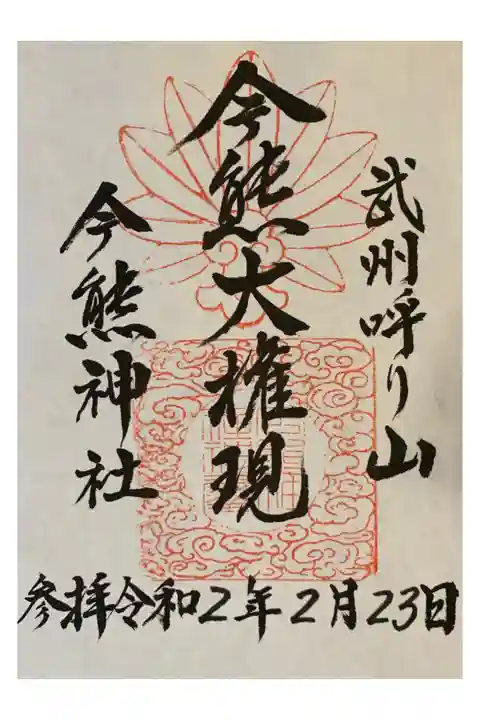 武州呼り山
今熊大権現
今熊神社
参拝令和2年2月23日